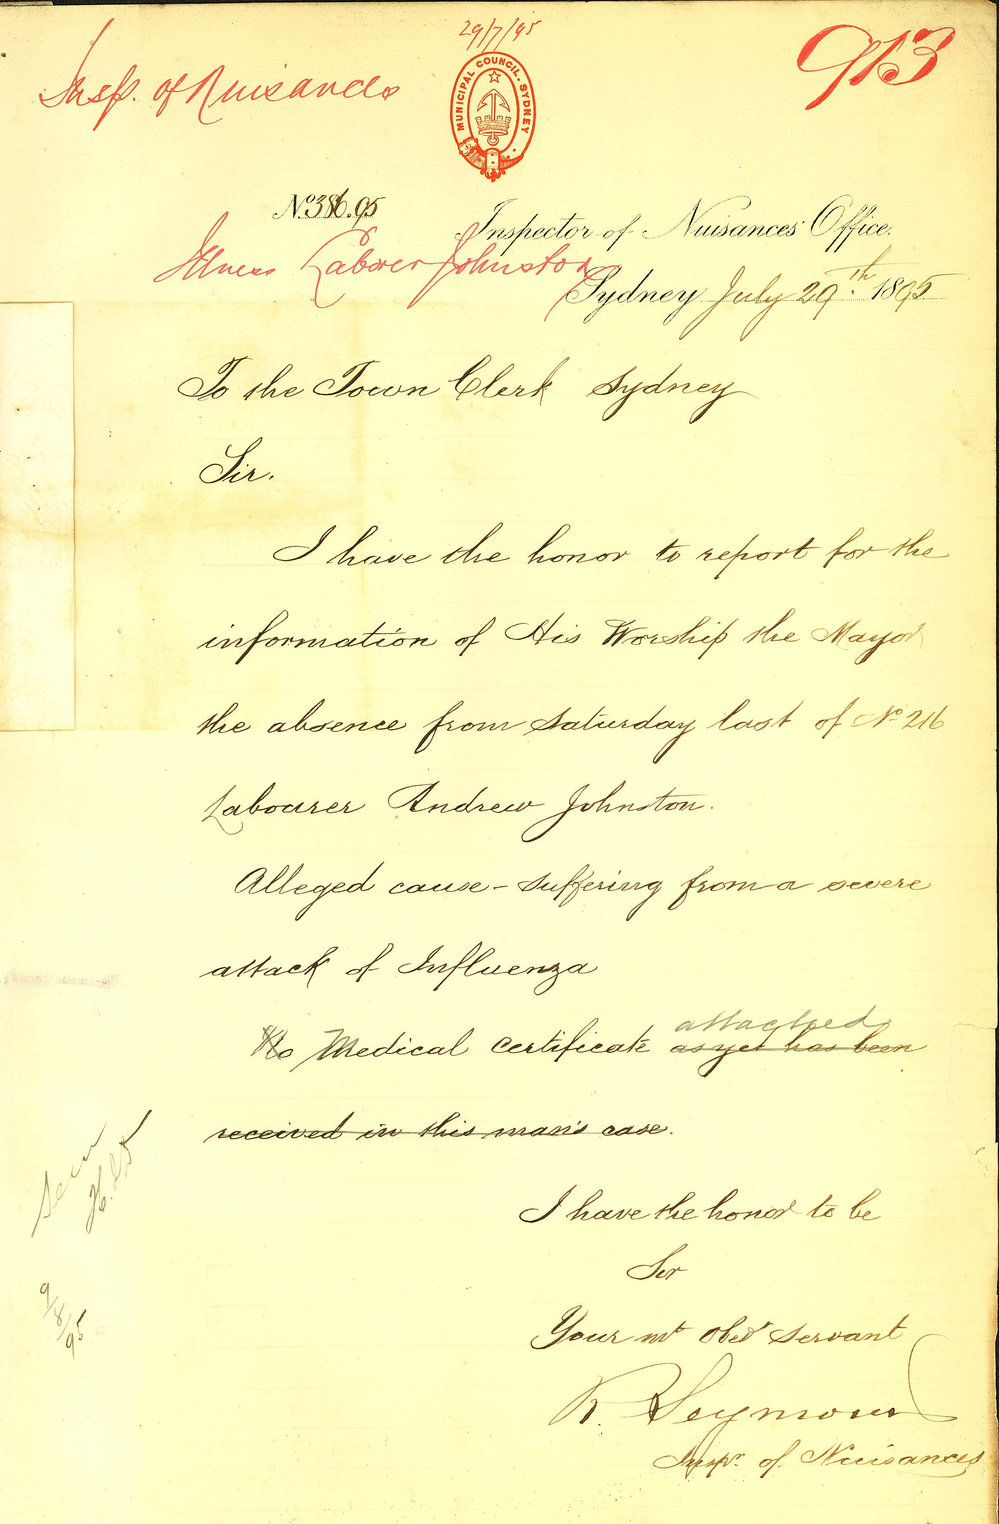 29/7/95
913
Insp. of Nuisances
MUNICIPAL COUNCIL. SYDNEY
No. 386.95
Inspector of Nuisances' Office.
Illness Laborer Johnston
Sydney July 29th 1895
To the Town Clerk Sydney
Sir.
I have the honor to report for the
information of His Worship the Mayor
the absence from Saturday last of No 216
Labourer Andrew Johnston.
Alleged cause - suffering from a severe
attack of Influenza
attached
No Medical certificate as yet has been
received in this man's case.
Seen
9/8/95
I have the honor to be
Sir
Your mt obedt servant
R. Seymour
Inspr. of Nuisances